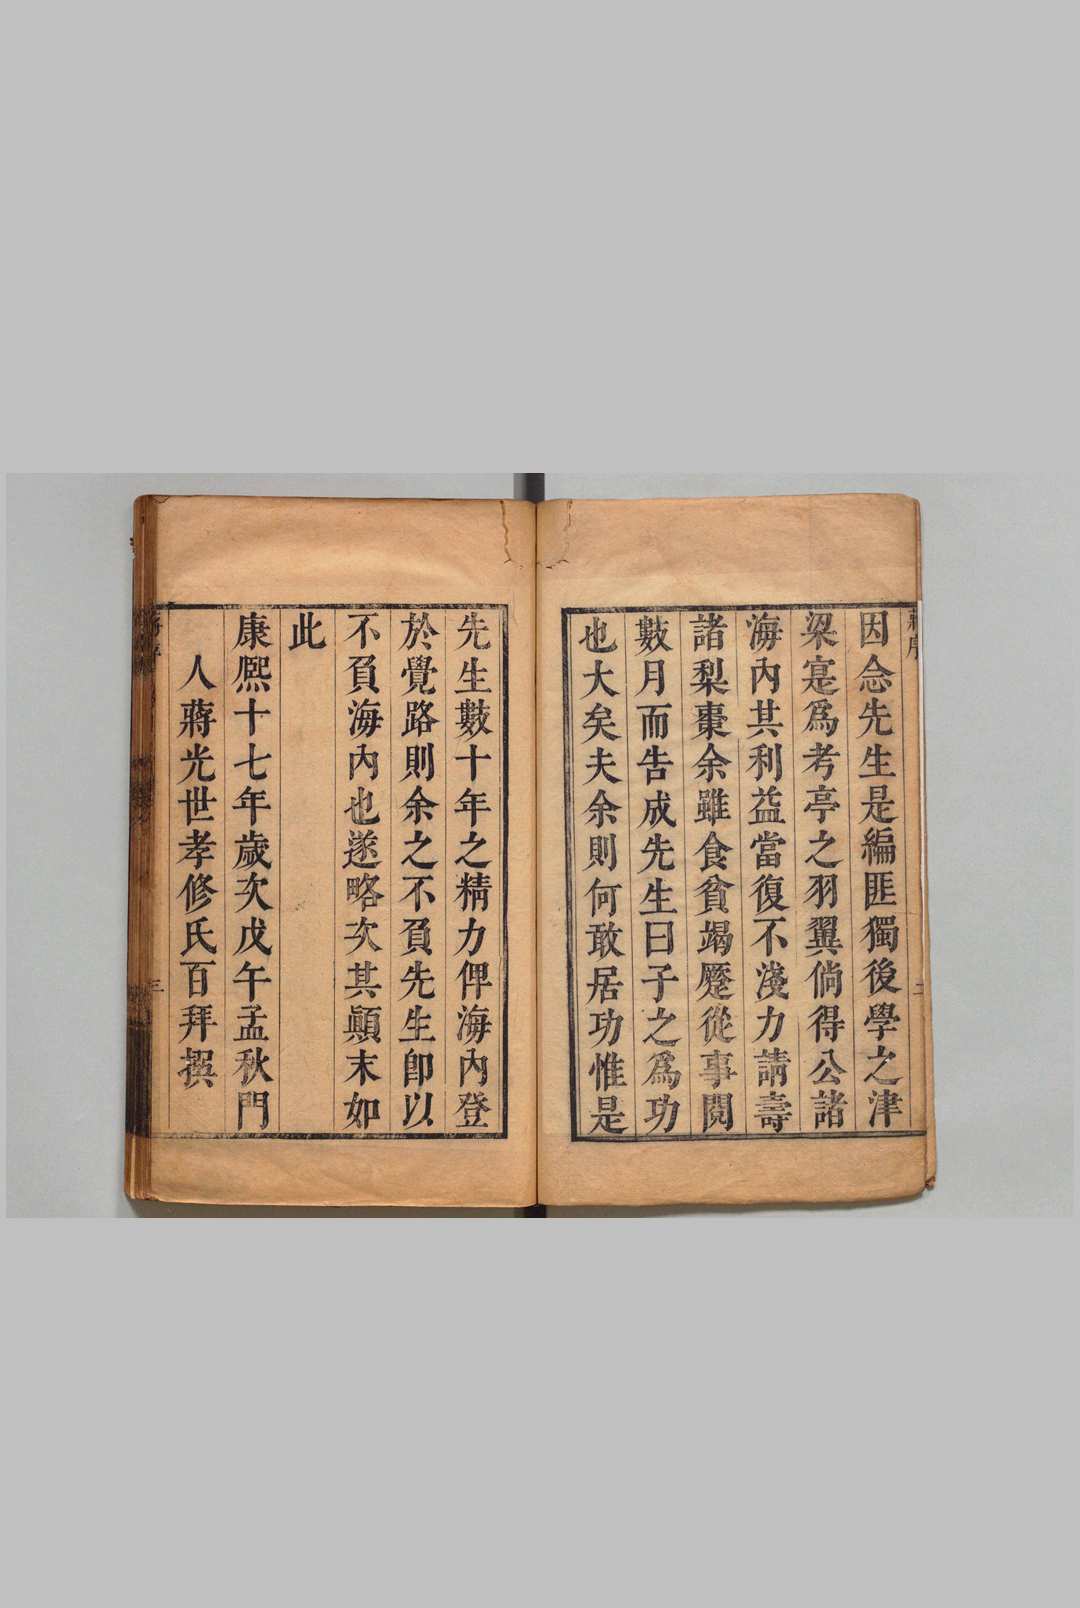 蔣序
二
因念先生是編匪獨後學之津
梁寔爲考亭之羽翼倘得公諸
海內其利益當復不淺力請壽
諸梨棗余雖食貧竭蹷從事閱
數月而告成先生曰子之爲功
也大矣夫余則何敢居功惟是
先生數十年之精力俾海內登
於覺路則余之不負先生卽以
不負海內也遂略次其顚末如
此
康熙十七年歲次戊午孟秋門
人蔣光世孝修氏百拜撰
蔣序
三